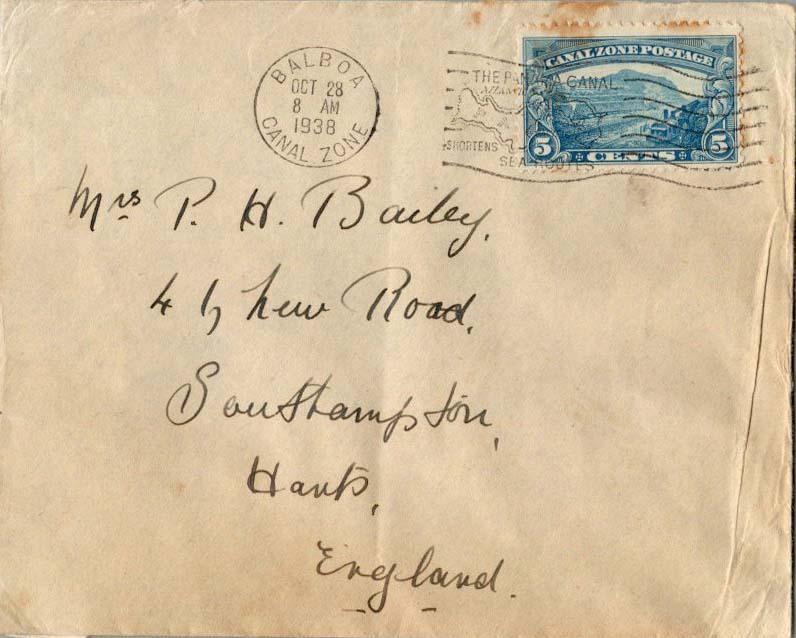 BALBOA
OCT 28
8 AM
1938
CANAL ZONE
THE PANAMA CANAL
ATLANTIC
SHORTENS
SEA ROUTES
CANAL ZONE POSTAGE
5 CENTS 5
Mrs P. H. Bailey,
4 New Road,
Southampton,
Hants,
England.